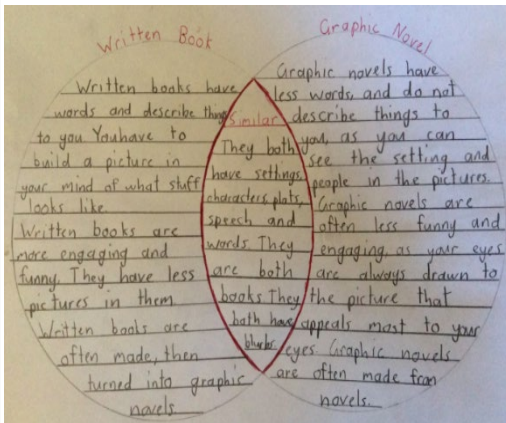 Written Book
Written books have
words and describe things
to you. You have to
build a picture in
your mind of what stuff
looks like.
Written books are
more engaging and
funny. They have less
pictures in them.
Written books are
often made, then
turned into graphic
novels.
Similar
They both
have settings,
characters, plots,
speech and
words. They
are both
books. They
both have
blurbs.
Graphic Novel
Graphic novels have
less words, and do not
describe things to
you, as you can
see the setting and
people in the pictures.
Graphic novels are
often less funny and
engaging, as your eyes
are always drawn to
the picture that
appeals most to your
eyes. Graphic novels
are often made from
novels.